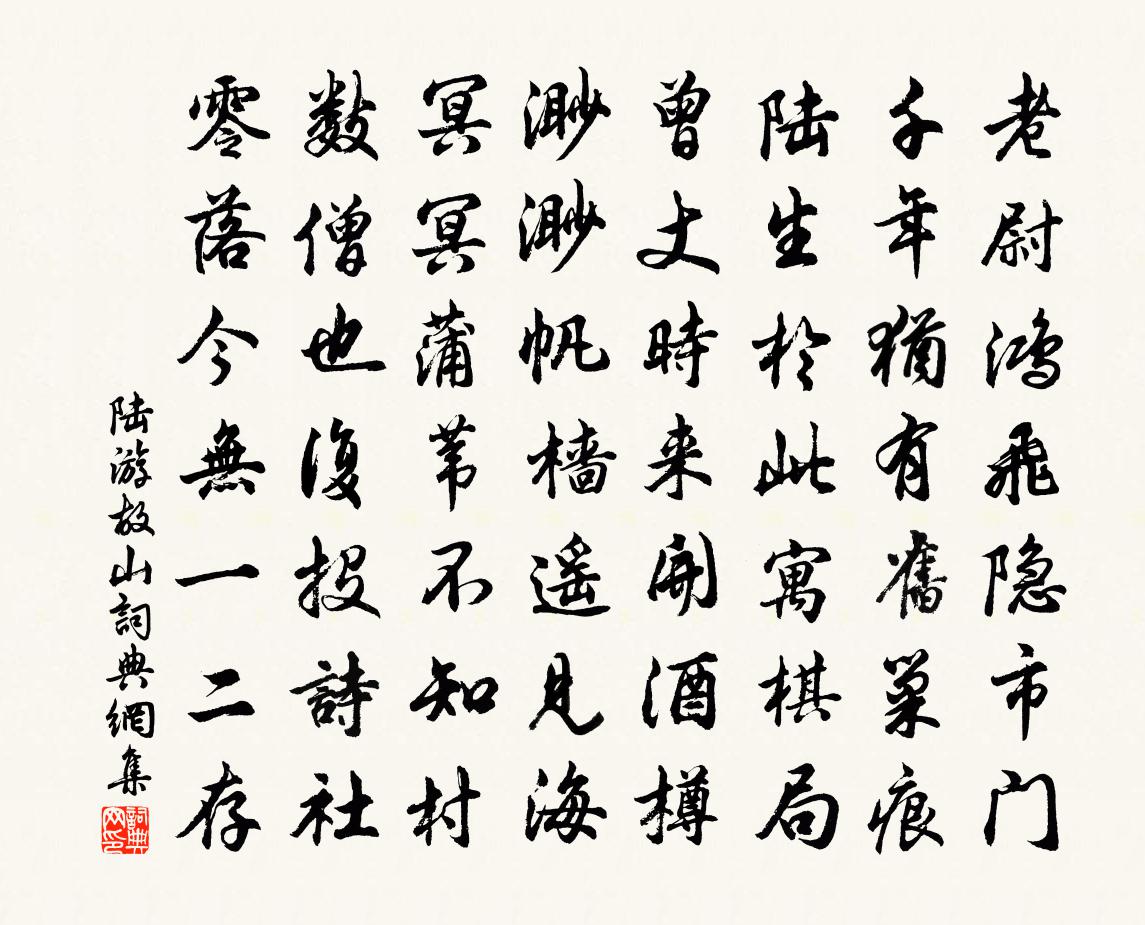 老尉鸿飛隐市门
千年猶有舊巢痕
陆生於此寓棋局
曾丈時来開酒樽
渺渺帆樯遥見海
冥冥蒲苇不知村
数僧也復投詩社
零落今無一二存
陆游故山詞典網集
詞典网印